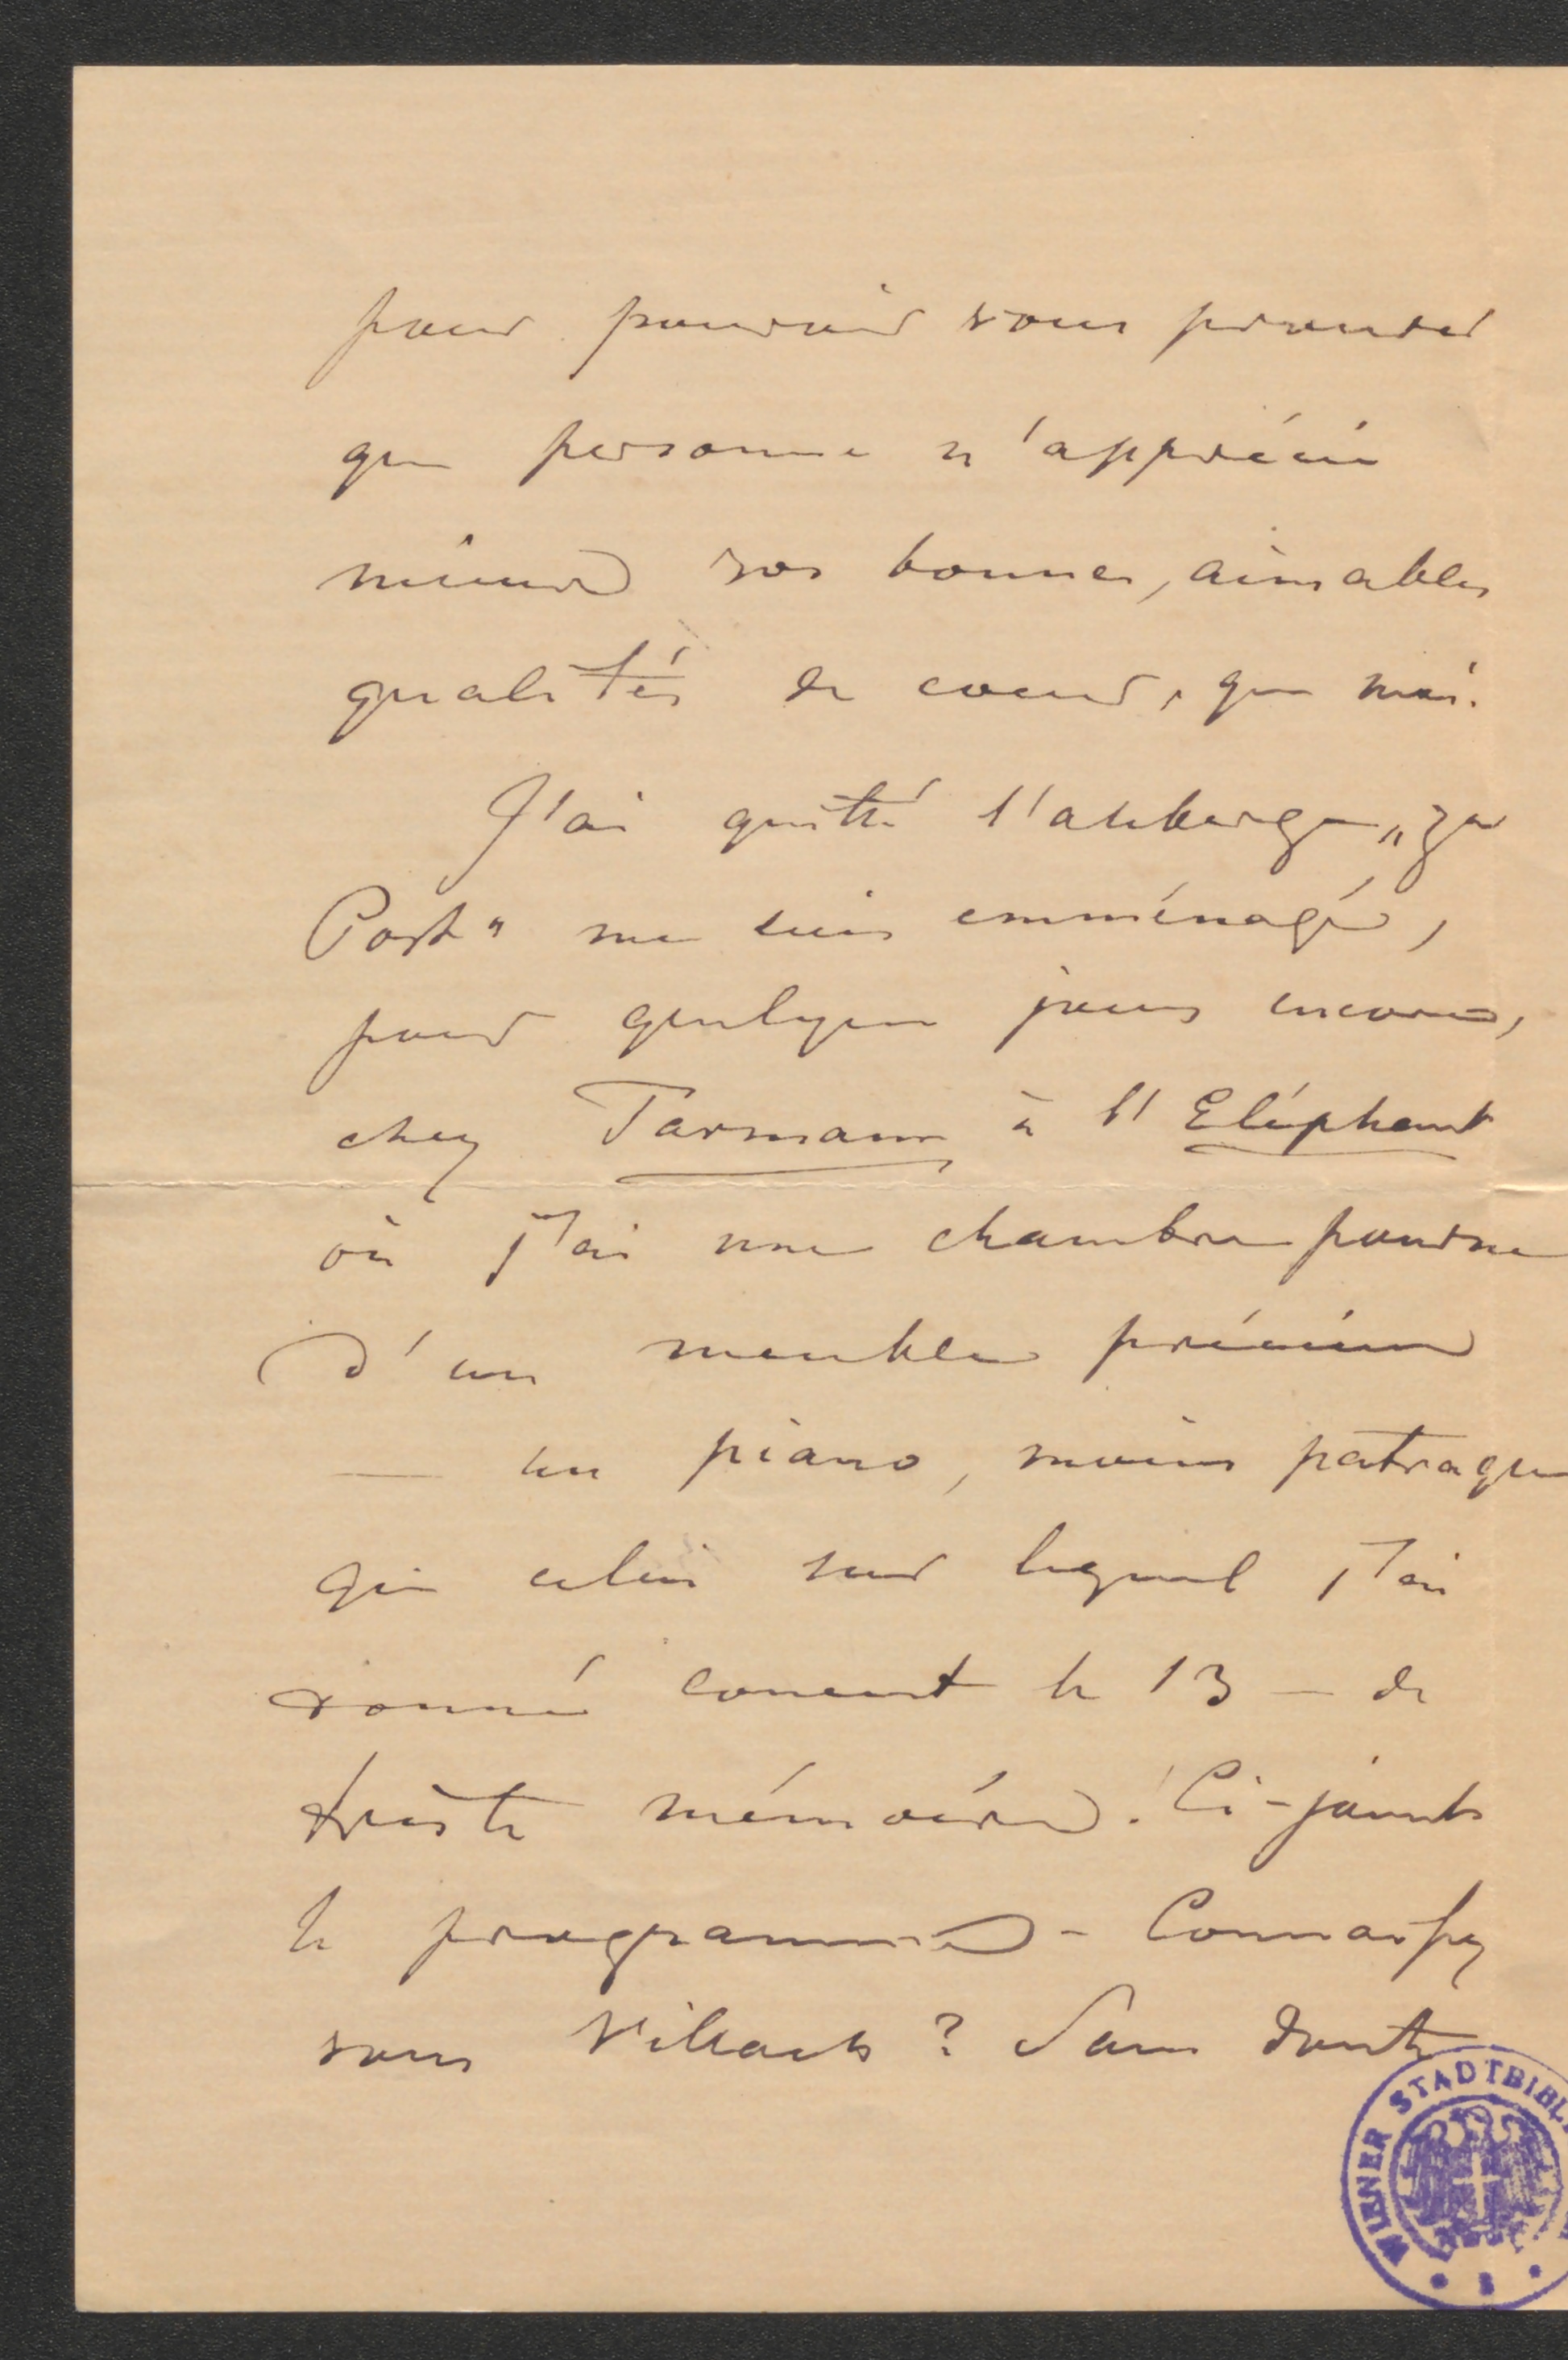 pour pouvoir vous prouver
que personne n'apprécie
mieux vos bonnes, aimables
qualités de coeur, que moi.
J'ai quitté l'auberge „zur
Post" me suis emménagé,
pour quelques jours encore,
chez Tarmann à l'Eléphant
où j'ai une chambre pourvue
d'un meuble précieux
— un piano, moins patraque
que celui sur lequel j'ai
donné concert le 13 — de
triste mémoire! Ci-joint
le programme - Connaissez
vous Villach? Sans doute
WIENER STADTBIBL